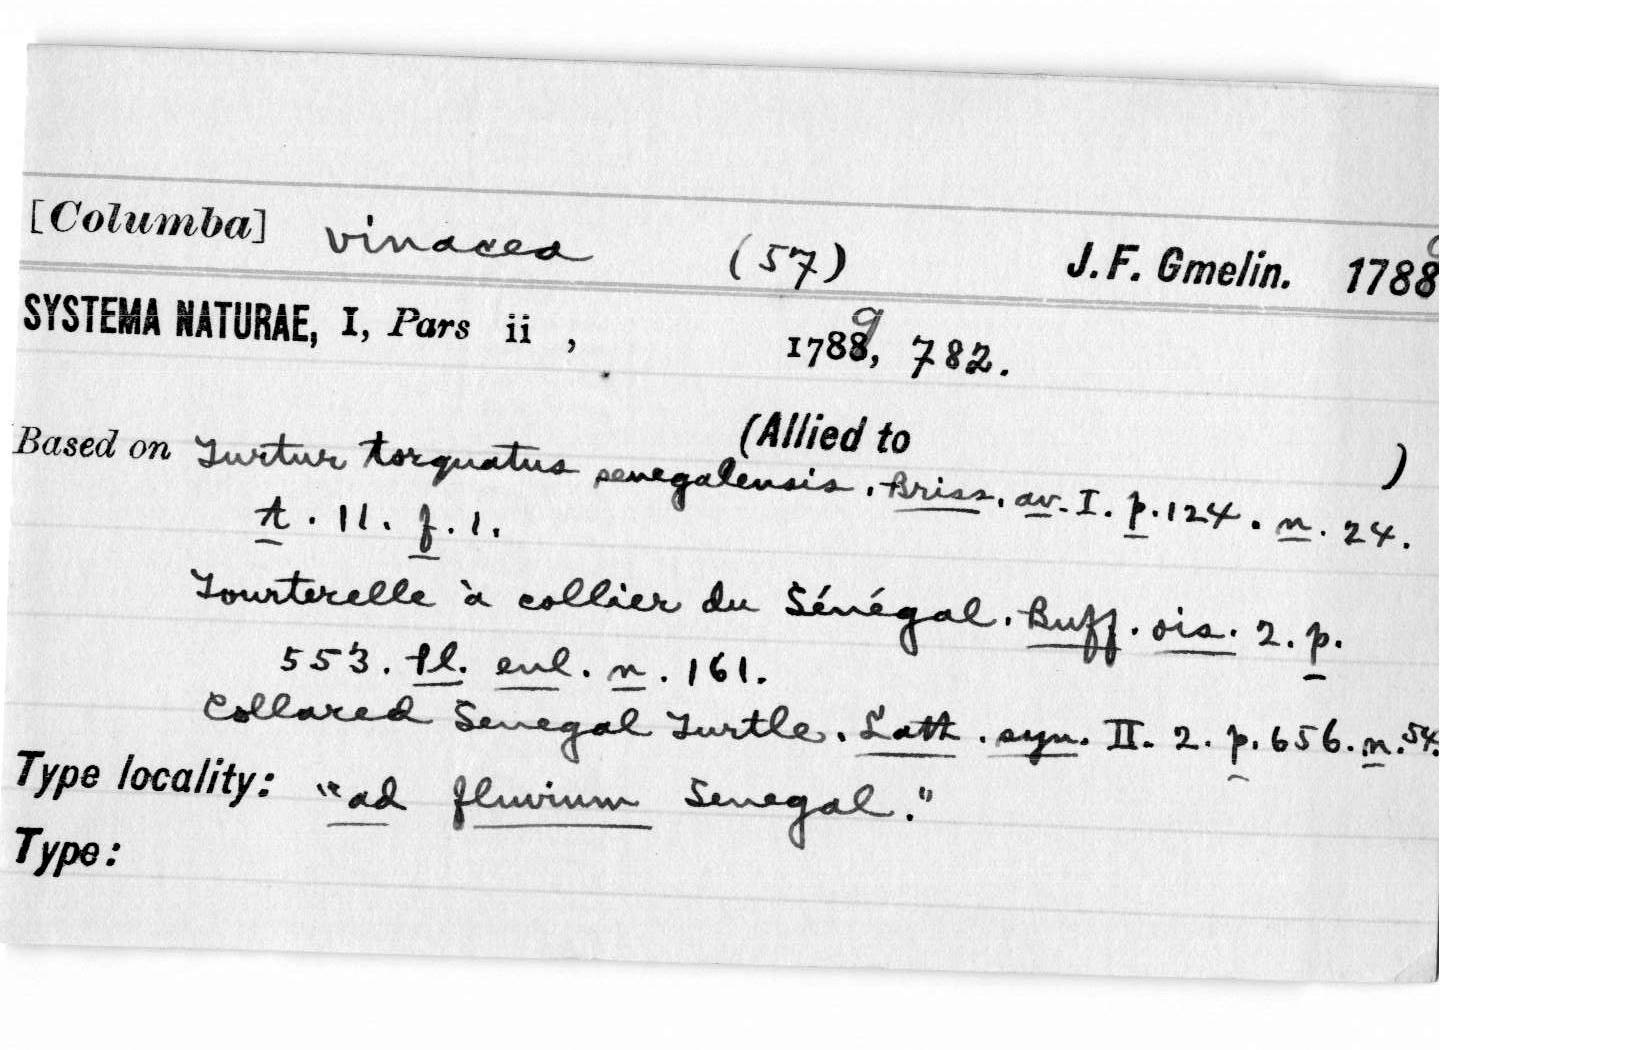 [Columba] vinacea (57) J. F. Gmelin. 1788 9
SYSTEMA NATURAE, I, Pars ii , 1788 9, 782.
(Allied to )
Based on Turtur torquatus senegalensis. Briss. av. I. p. 124. n. 24.
t. 11. f. 1.
Tourterelle à collier du Sénégal. Buff. ois. 2. p.
553. Pl. enl. n. 161.
Collared Senegal Turtle. Lath. syn. II. 2. p. 656. n. 54.
Type locality: "ad fluvium Senegal."
Type: